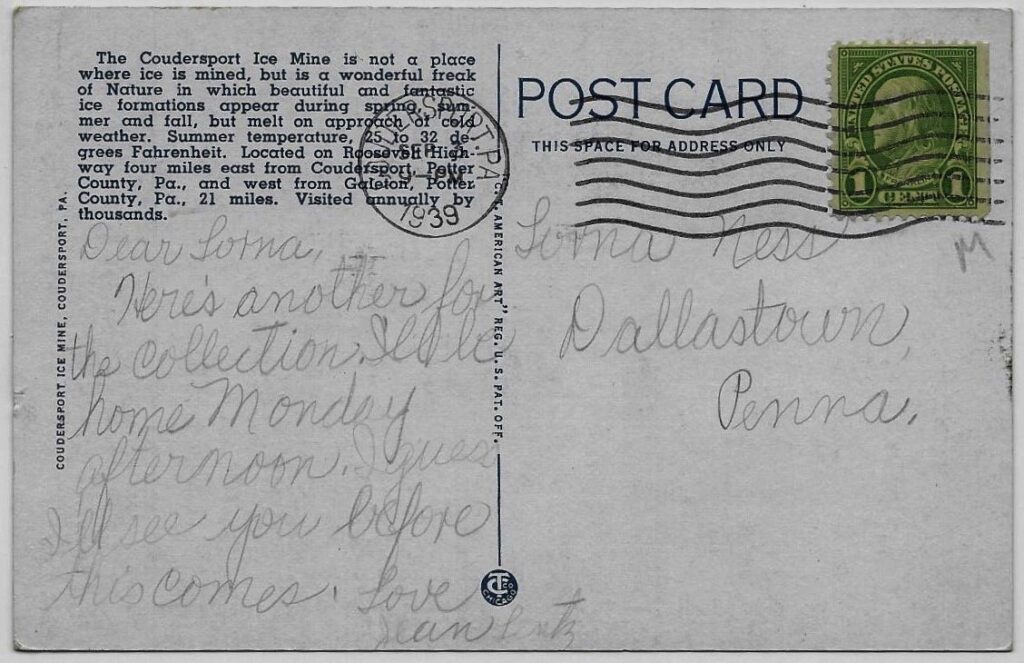 The Coudersport Ice Mine is not a place
where ice is mined, but is a wonderful freak
of Nature in which beautiful and fantastic
ice formations appear during spring, sum-
mer and fall, but melt on approach of cold
weather. Summer temperature, 25 to 32 de-
grees Fahrenheit. Located on Roosevelt High-
way four miles east from Coudersport, Potter
County, Pa., and west from Galeton, Potter
County, Pa., 21 miles. Visited annually by
thousands.
COUDERSPORT ICE MINE, COUDERSPORT, PA.
Dear Lorna,
Here's another for
the collection. I'll be
home Monday
afternoon. I guess
I'll see you before
this comes. Love
Jean Lentz
COUDERSPORT, PA.
SEP
PM
1939
"C.T. AMERICAN ART" REG. U.S. PAT. OFF.
CHICAGO
POST CARD
THIS SPACE FOR ADDRESS ONLY
UNITED STATES POSTAGE
1 CENT 1
Lorna Ness
Dallastown,
Penna.
M